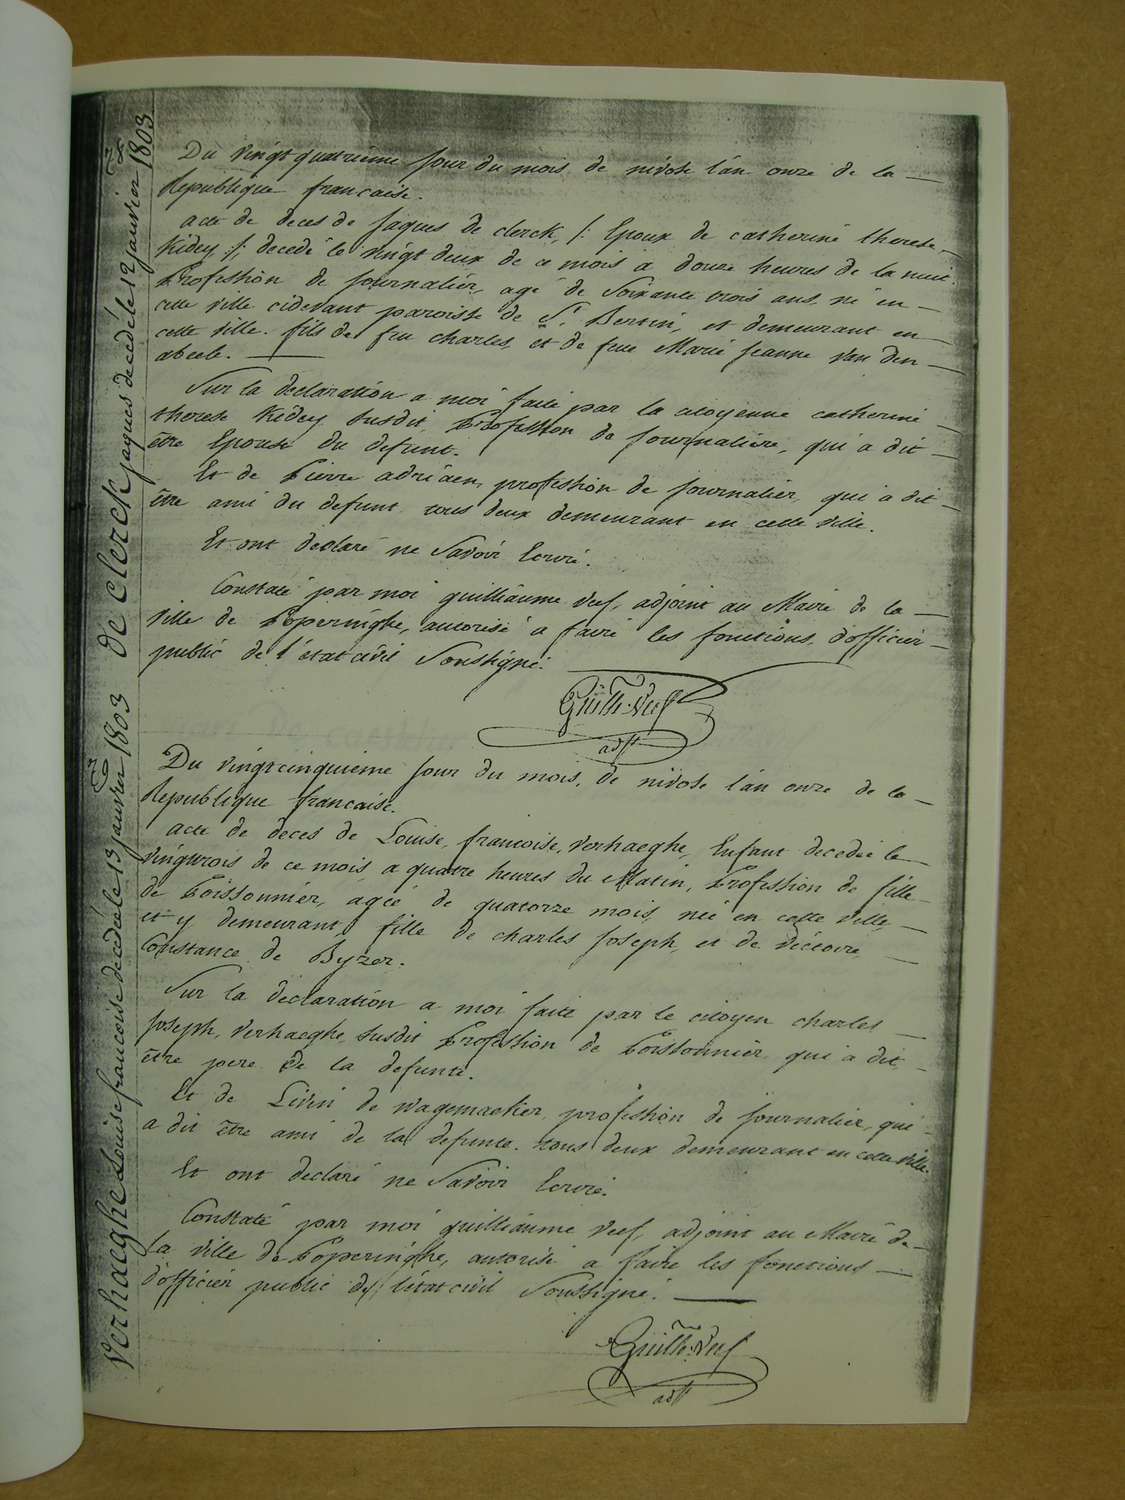 de Clerck jaques decedé le 12 janvier 1803
Du vingt quatrieme jour du mois de nivose l'an onze de la
Republique francaise.
acte de deces de Jaques de clerck, /: Epoux de catherine therese
Kidey :/, decedé le vingt deux de ce mois a douze heures de la nuit
Profession de Journalier, agé de Soixante trois ans, né en
cette ville cidevant paroisse de St Bertin, et demeurant en
cette ville. fils de feu charles, et de feue Marie Jeanne Van den
abeele.
Sur la declaration a moi faite par la citoyenne catherine
therese Kidey susdit, Profession de Journaliere, qui a dit
être Epouse du defunt.
Et de Pierre adriaen, profession de journalier, qui a dit
être ami du defunt, tous deux demeurant en cette ville.
Et ont declaré ne Savoir Ecrire.
Constaté par moi guilliaume Veef, adjoint au Maire de la
ville de Poperinghe, autorisé a faire les fonctions, d'officier
public de l'état civil Soussigné.
Guilh. Veef
adjt
Verhaeghe Louise francoise decedée le 13 janvier 1803
Du vingtcinquieme jour du mois, de nivose l'an onze de la
Republique francaise.
acte de deces de Louise, francoise, verhaeghe, Enfant decedée le
vingtrois de ce mois a quatre heures du Matin, Profession de fille
de Poissonnier, agée de quatorze mois, née en cette ville,
et y demeurant, fille de charles Joseph, et de victoire
Constance de Byzer.
Sur la declaration a moi faite par le citoyen charles
Joseph, verhaeghe, susdit Profession de Poissonnier qui a dit
être pere de la defunte.
Et de Livin de wagemacker, profession de journalier, qui
a dit être ami de la defunte. tous deux demeurant en cette ville.
Et ont declaré ne Savoir Ecrire.
Constaté par moi guilliaume veef, adjoint au Maire de
la ville de Poperinghe, autorisé a faire les fonctions
d'officier public de l'état civil Soussigné.
Guilh. Veef
adjt